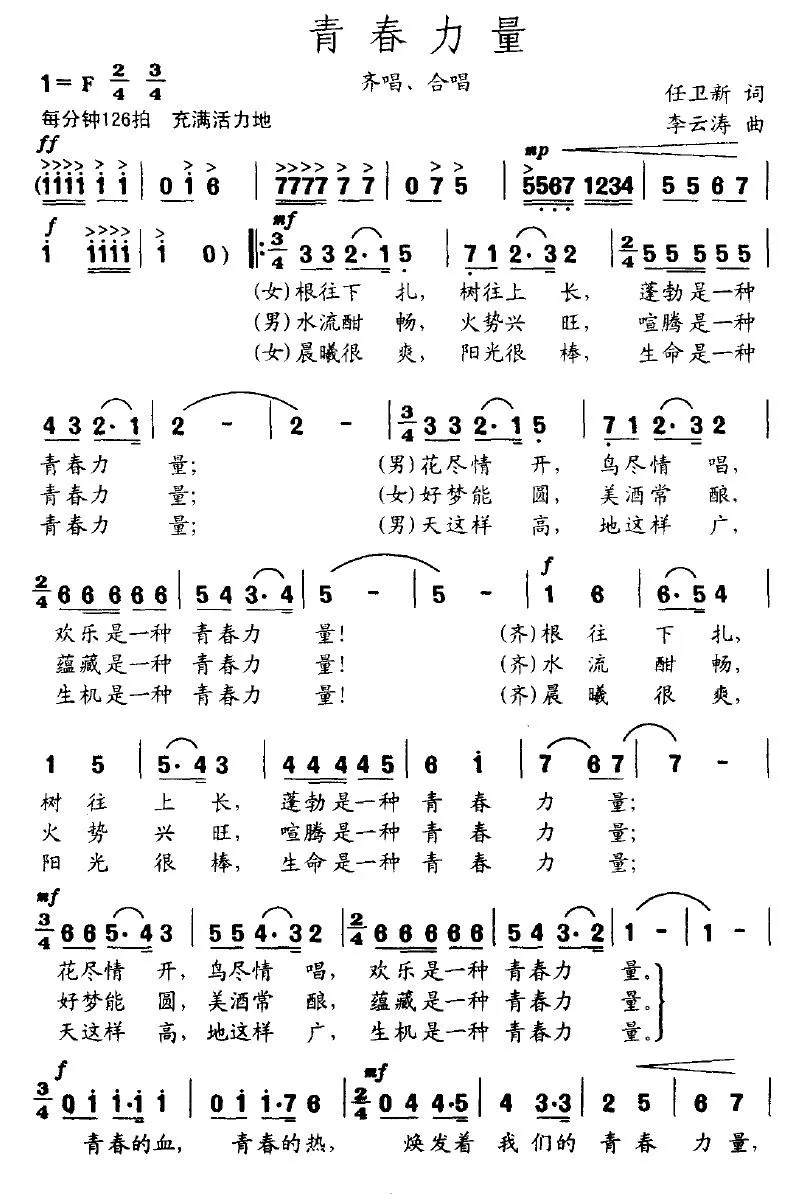 青春力量
1=F 2/4 3/4
齐唱、合唱
任卫新 词
每分钟126拍 充满活力地
李云涛 曲
ff
mp
(1111 1 1 | 0 1 6 | 7777 7 7 | 0 7 5 | 5567 1234 | 5 5 6 7 |
f
mf
1 1111 | 1 0) |: 3/4 3 3 2·1 5 | 7 1 2·3 2 | 2/4 5 5 5 5 5 5 |
(女)根往下 扎, 树往上 长, 蓬勃是一种
(男)水流酣 畅, 火势兴 旺, 喧腾是一种
(女)晨曦很 爽, 阳光很 棒, 生命是一种
4 3 2·1 | 2 - | 2 - | 3/4 3 3 2·1 5 | 7 1 2·3 2 |
青春力 量; (男)花尽情 开, 鸟尽情 唱,
青春力 量; (女)好梦能 圆, 美酒常 酿,
青春力 量; (男)天这样 高, 地这样 广,
f
2/4 6 6 6 6 6 6 | 5 4 3·4 | 5 - | 5 - | 1 6 | 6·5 4 |
欢乐是一种 青春力 量! (齐)根 往 下 扎,
蕴藏是一种 青春力 量! (齐)水 流 酣 畅,
生机是一种 青春力 量! (齐)晨 曦 很 爽,
1 5 | 5·4 3 | 4 4 4 4 4 5 | 6 1 | 7 6 7 | 7 - |
树 往 上 长, 蓬勃是一种 青 春 力 量;
火 势 兴 旺, 喧腾是一种 青 春 力 量;
阳 光 很 棒, 生命是一种 青 春 力 量;
mf
3/4 6 6 5·4 3 | 5 5 4·3 2 | 2/4 6 6 6 6 6 6 | 5 4 3·2 | 1 - | 1 - |
花尽情 开, 鸟尽情 唱, 欢乐是一种 青春力 量。
好梦能 圆, 美酒常 酿, 蕴藏是一种 青春力 量。
天这样 高, 地这样 广, 生机是一种 青春力 量。
f
mf
3/4 0 1 1·1 1 | 0 1 1·7 6 | 2/4 0 4 4·5 | 4 3·3 | 2 5 | 6 7 |
青春的血, 青春的热, 焕发着 我们的 青春 力量,